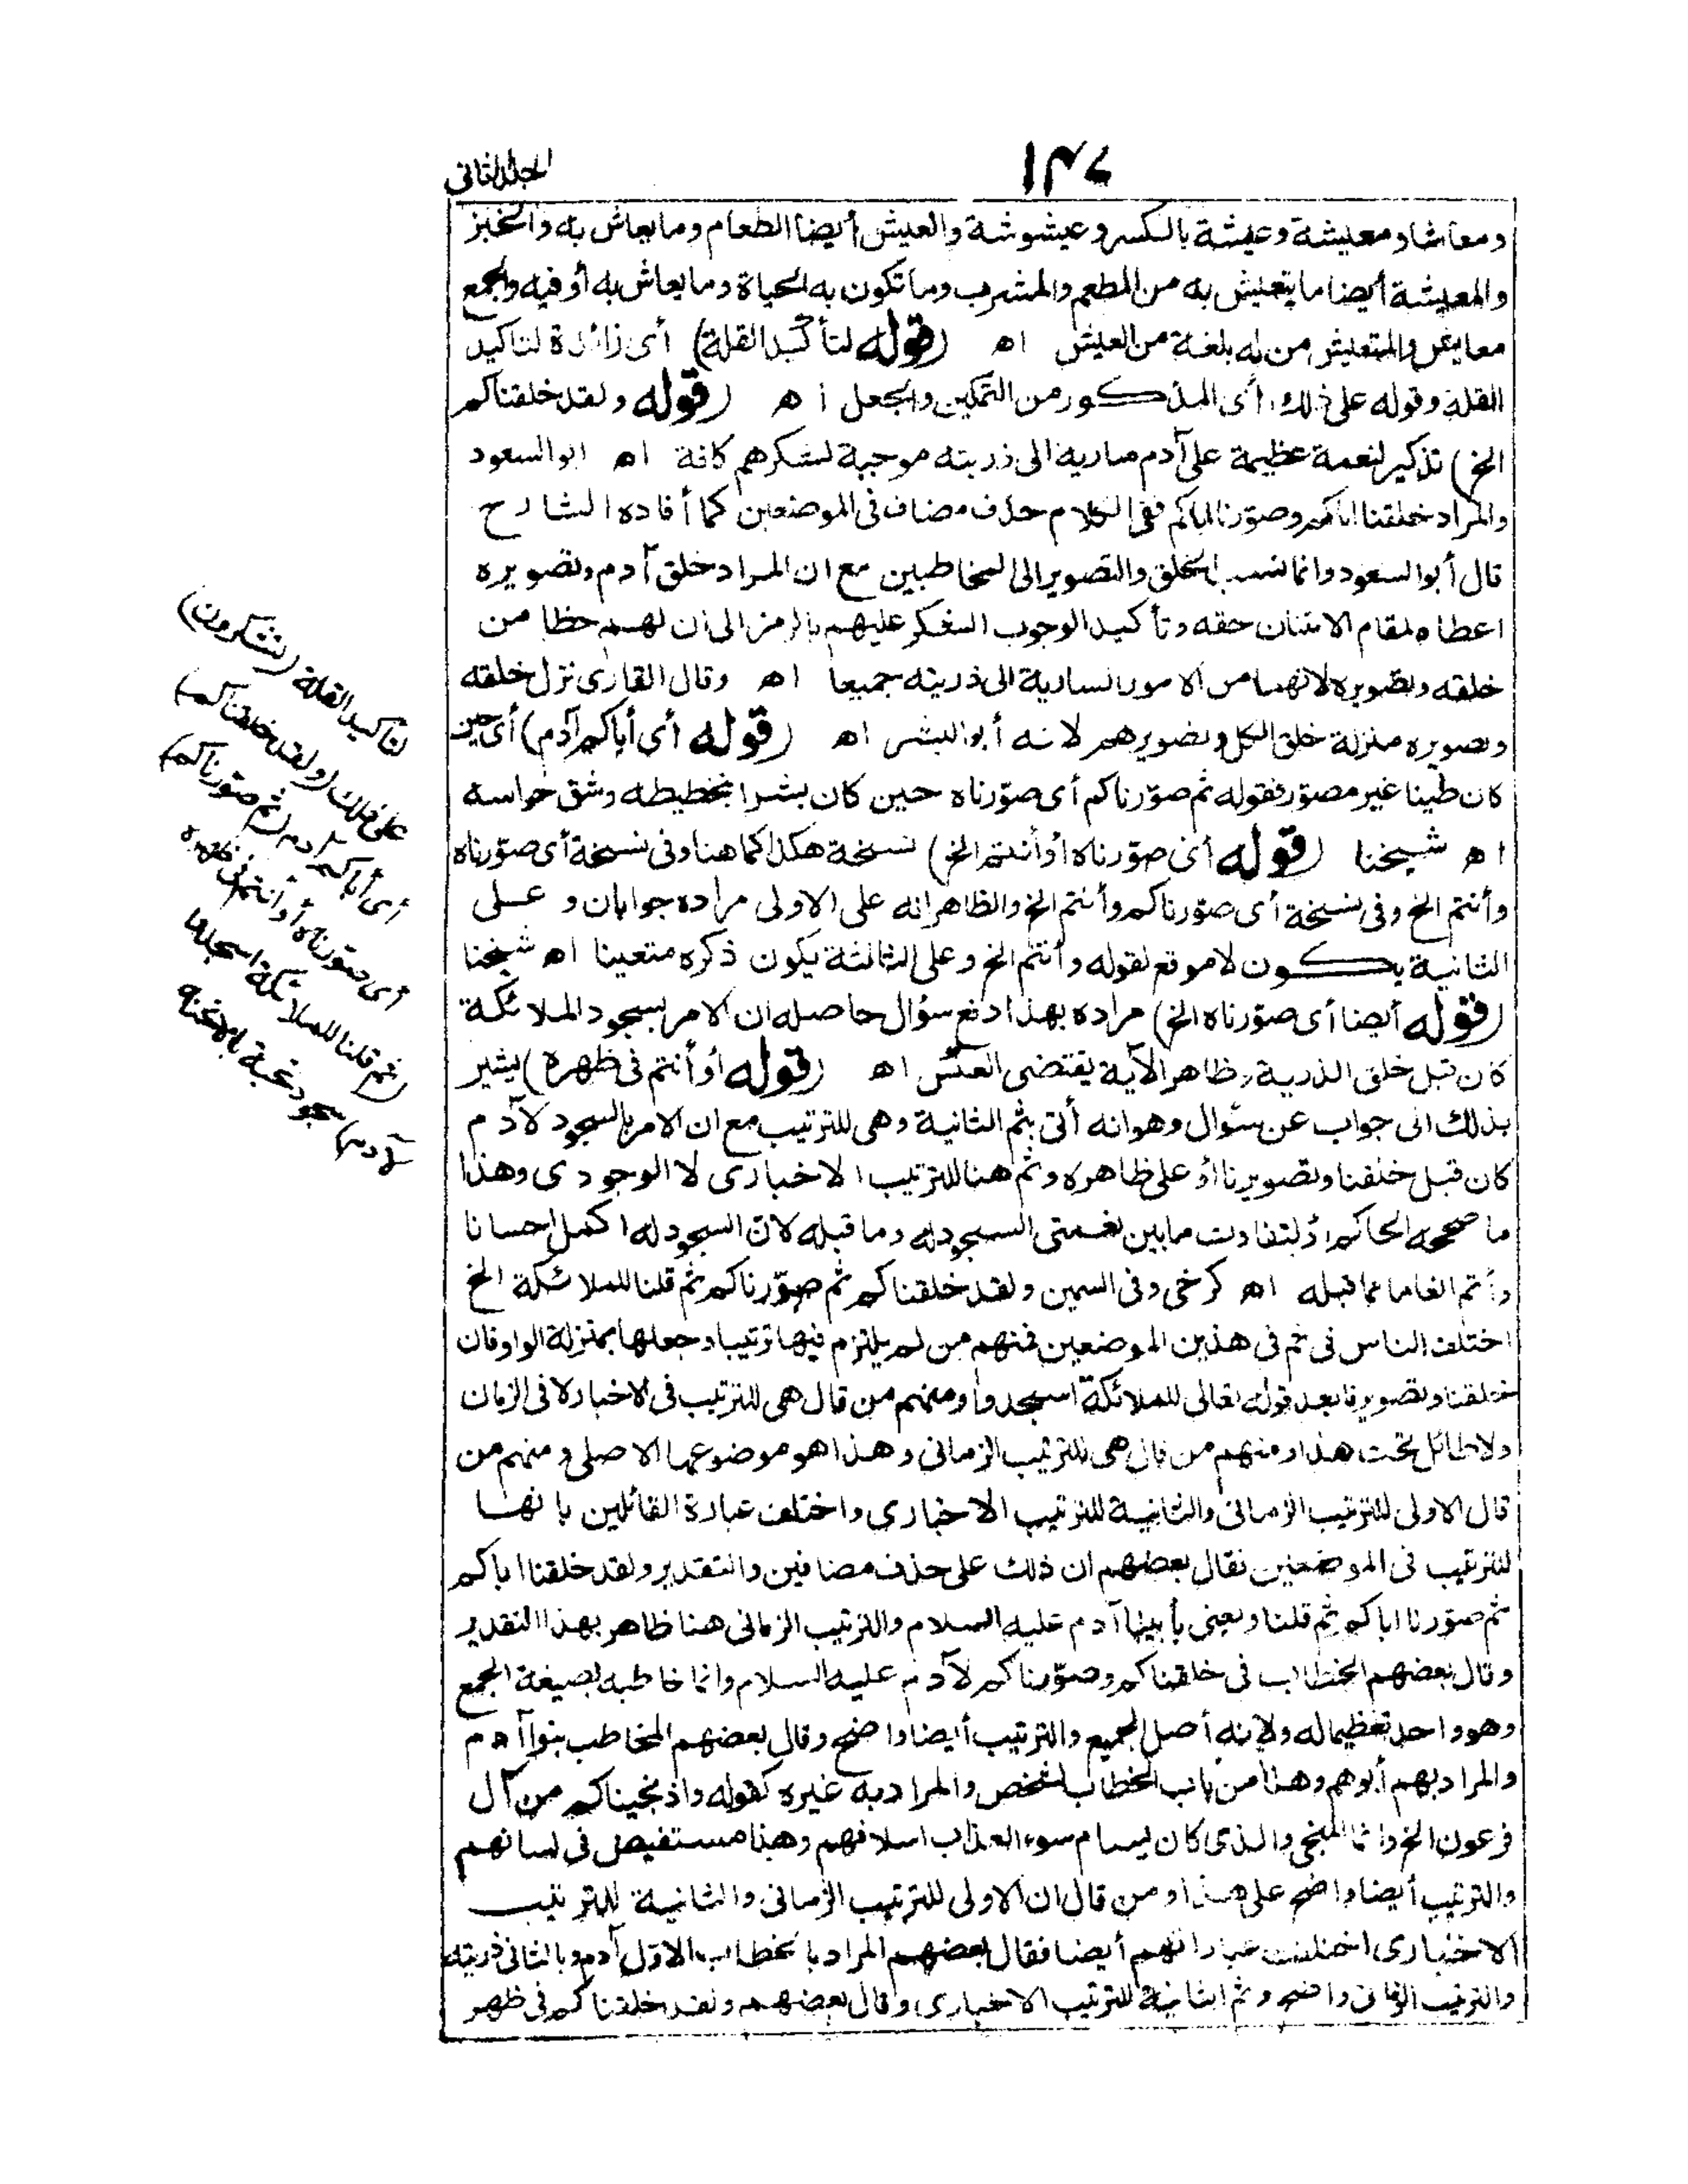 الجلد الثاني
١٢٤
ومعاشا ومعيشة وعيشة بالكسر وعيشوشة والعيش أيضا الطعام وما يعاش به والخبز
والمعيشة أيضا ما يتعيش به من المطعم والمشرب وما تكون به الحياة وما يعاش به أو فيه والجمع
معايش والمتعيش من له بلغة من العيش اه (قوله لتأكيد القلة) أى زائدة لتاكيد
القلة وقوله على ذلك أى المذكور من التمكين والجعل اه (قوله ولقد خلقناكم
الخ) تذكير لنعمة عظيمة على آدم سارية الى ذريته موجبة لشكرهم كافة اه ابو السعود
والمراد خلقنا اباكم وصوّرنا اباكم ففى الكلام حذف مضاف فى الموضعين كما أفاده الشارح
قال أبو السعود وانما نسب الخلق والتصوير الى المخاطبين مع ان المراد خلق آدم وتصويره
اعطاء لمقام الامتنان حقه وتأكيد الوجوب الشكر عليهم بالرمز الى ان لهم حظا من
خلقه وتصويره لانهما من الامور السارية الى ذريته جميعا اه وقال القارى نزل خلقه
وتصويره منزلة خلق الكل وتصويرهم لانه أبو البشر اه (قوله أى أباكم آدم) أى حين
كان طينا غير مصوّر فقوله ثم صوّرناكم أى صوّرناه حين كان بشرا بتخطيطه وشق حواسه
اه شيخنا (قوله أى صوّرناه أو أنتم الخ) نسخة هكذا كما هنا وفى نسخة أى صوّرناه
وأنتم الخ وفى نسخة أى صوّرناكم وأنتم الخ والظاهر انه على الاولى مراده جوابان وعلى
الثانية يكون لا موقع لقوله وأنتم الخ وعلى الثالثة يكون ذكره متعينا اه شيخنا
(قوله أيضا أى صوّرناه الخ) مراده بهذا دفع سؤال حاصله ان الامر بسجود الملائكة
كان قبل خلق الذرية وظاهر الآية يقتضى العكس اه (قوله أو أنتم فى ظهره) يشير
بذلك الى جواب عن سؤال وهو انه أتى بثم الثانية وهى للترتيب مع ان الامر بالسجود لآدم
كان قبل خلقنا وتصويرنا أو على ظاهره وثم هنا للترتيب الاخبارى لا الوجودى وهذا
ما صححه الحاكم أو لتفاوت ما بين نعمتى السجود له وما قبله لان السجود له اكمل احسانا
وأتم انعاما مما قبله اه كرخى وفى السمين ولقد خلقناكم ثم صوّرناكم ثم قلنا للملائكة الخ
اختلف الناس فى ثم فى هذين الموضعين فمنهم من لم يلتزم فيها ترتيبا وجعلها بمنزلة الواو فان
خلقنا وتصويرنا بعد قوله تعالى للملائكة اسجدوا ومنهم من قال هى للترتيب فى الاخبار لا فى الزمان
ولا طائل تحت هذا ومنهم من قال هى للترتيب الزمانى وهذا هو موضوعها الاصلى ومنهم من
قال الاولى للترتيب الزمانى والثانية للترتيب الاخبارى واختلف عبارة القائلين بانها
للترتيب فى الموضعين فقال بعضهم ان ذلك على حذف مضافين والتقدير ولقد خلقنا اباكم
ثم صوّرنا اباكم ثم قلنا ويعنى بأبينا آدم عليه السلام والترتيب الزمانى هنا ظاهر بهذا التقدير
وقال بعضهم الخطاب فى خلقناكم وصوّرناكم لآدم عليه السلام وانما خاطبه بصيغة الجمع
وهو واحد تعظيما له ولانه أصل الجميع والترتيب أيضا واضح وقال بعضهم المخاطب بنوا آدم
والمراد بهم أبوهم وهذا من باب الخطاب لشخص والمراد به غيره كقوله واذ نجيناكم من آل
فرعون الخ وانما المنجى والذى كان يسام سوء العذاب اسلافهم وهذا مستفيض فى لسانهم
والترتيب أيضا واضح على هذا ومن قال ان الاولى للترتيب الزمانى والثانية للترتيب
الاخبارى اختلفت عباراتهم أيضا فقال بعضهم المراد بالخطاب الاوّل آدم وبالثانى ذريته
والترتيب الزمانى واضح وثم الثانية للترتيب الاخبارى وقال بعضهم ولقد خلقناكم فى ظهر
لتاكيد القلة (تشكرون)
على ذلك (ولقد خلقناكم)
أى أباكم آدم (ثم صوّرناكم)
أى صوّرناه أو أنتم فى ظهره
(ثم قلنا للملائكة اسجدوا
لآدم) سجود تحية بالانحناء